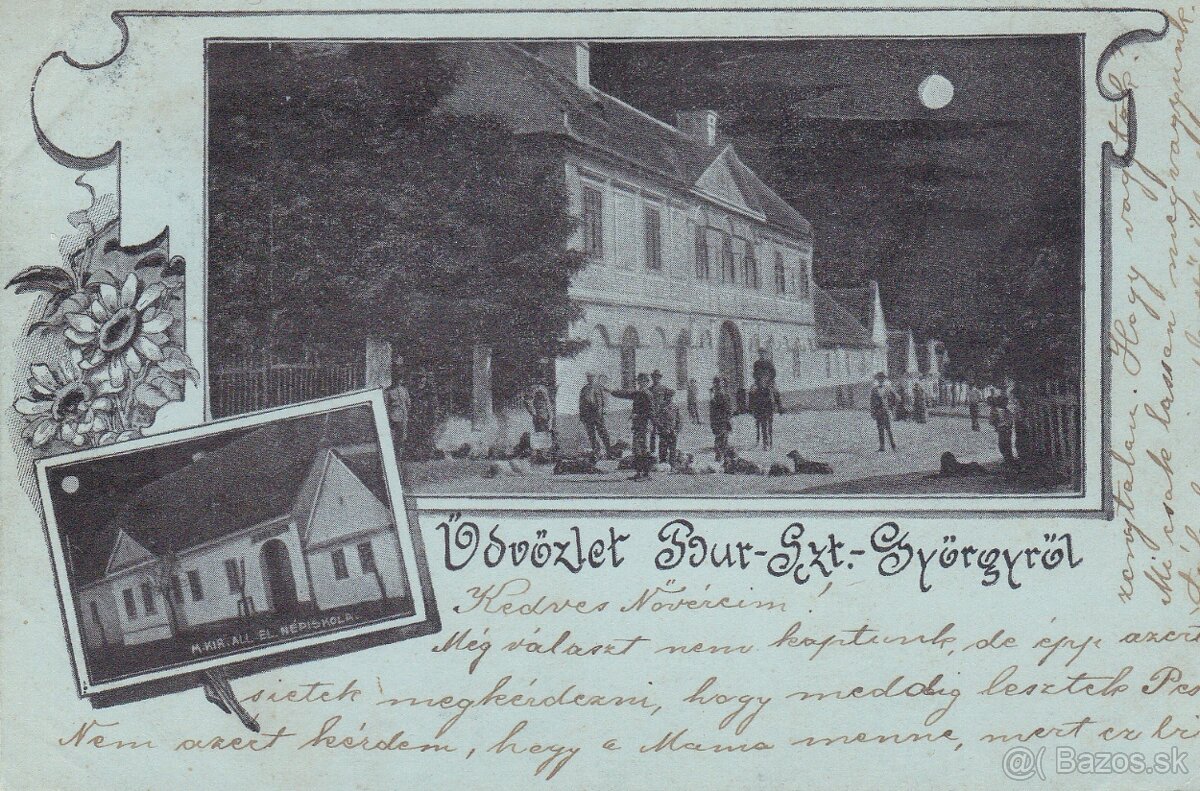 Üdvözlet Bur-Szt.-Györgyről
M. KIR. ÁLL. EL. NÉPISKOLA.
Kedves Nővéreim!
Még választ nem kaptunk, de épp azért
sietek megkérdezni, hogy meddig lesztek
Nem azért kérdem, hogy a Mama menne, mert ez
Hogy vagytok?
Mi csak lassan megvagyunk.
@( Bazos.sk